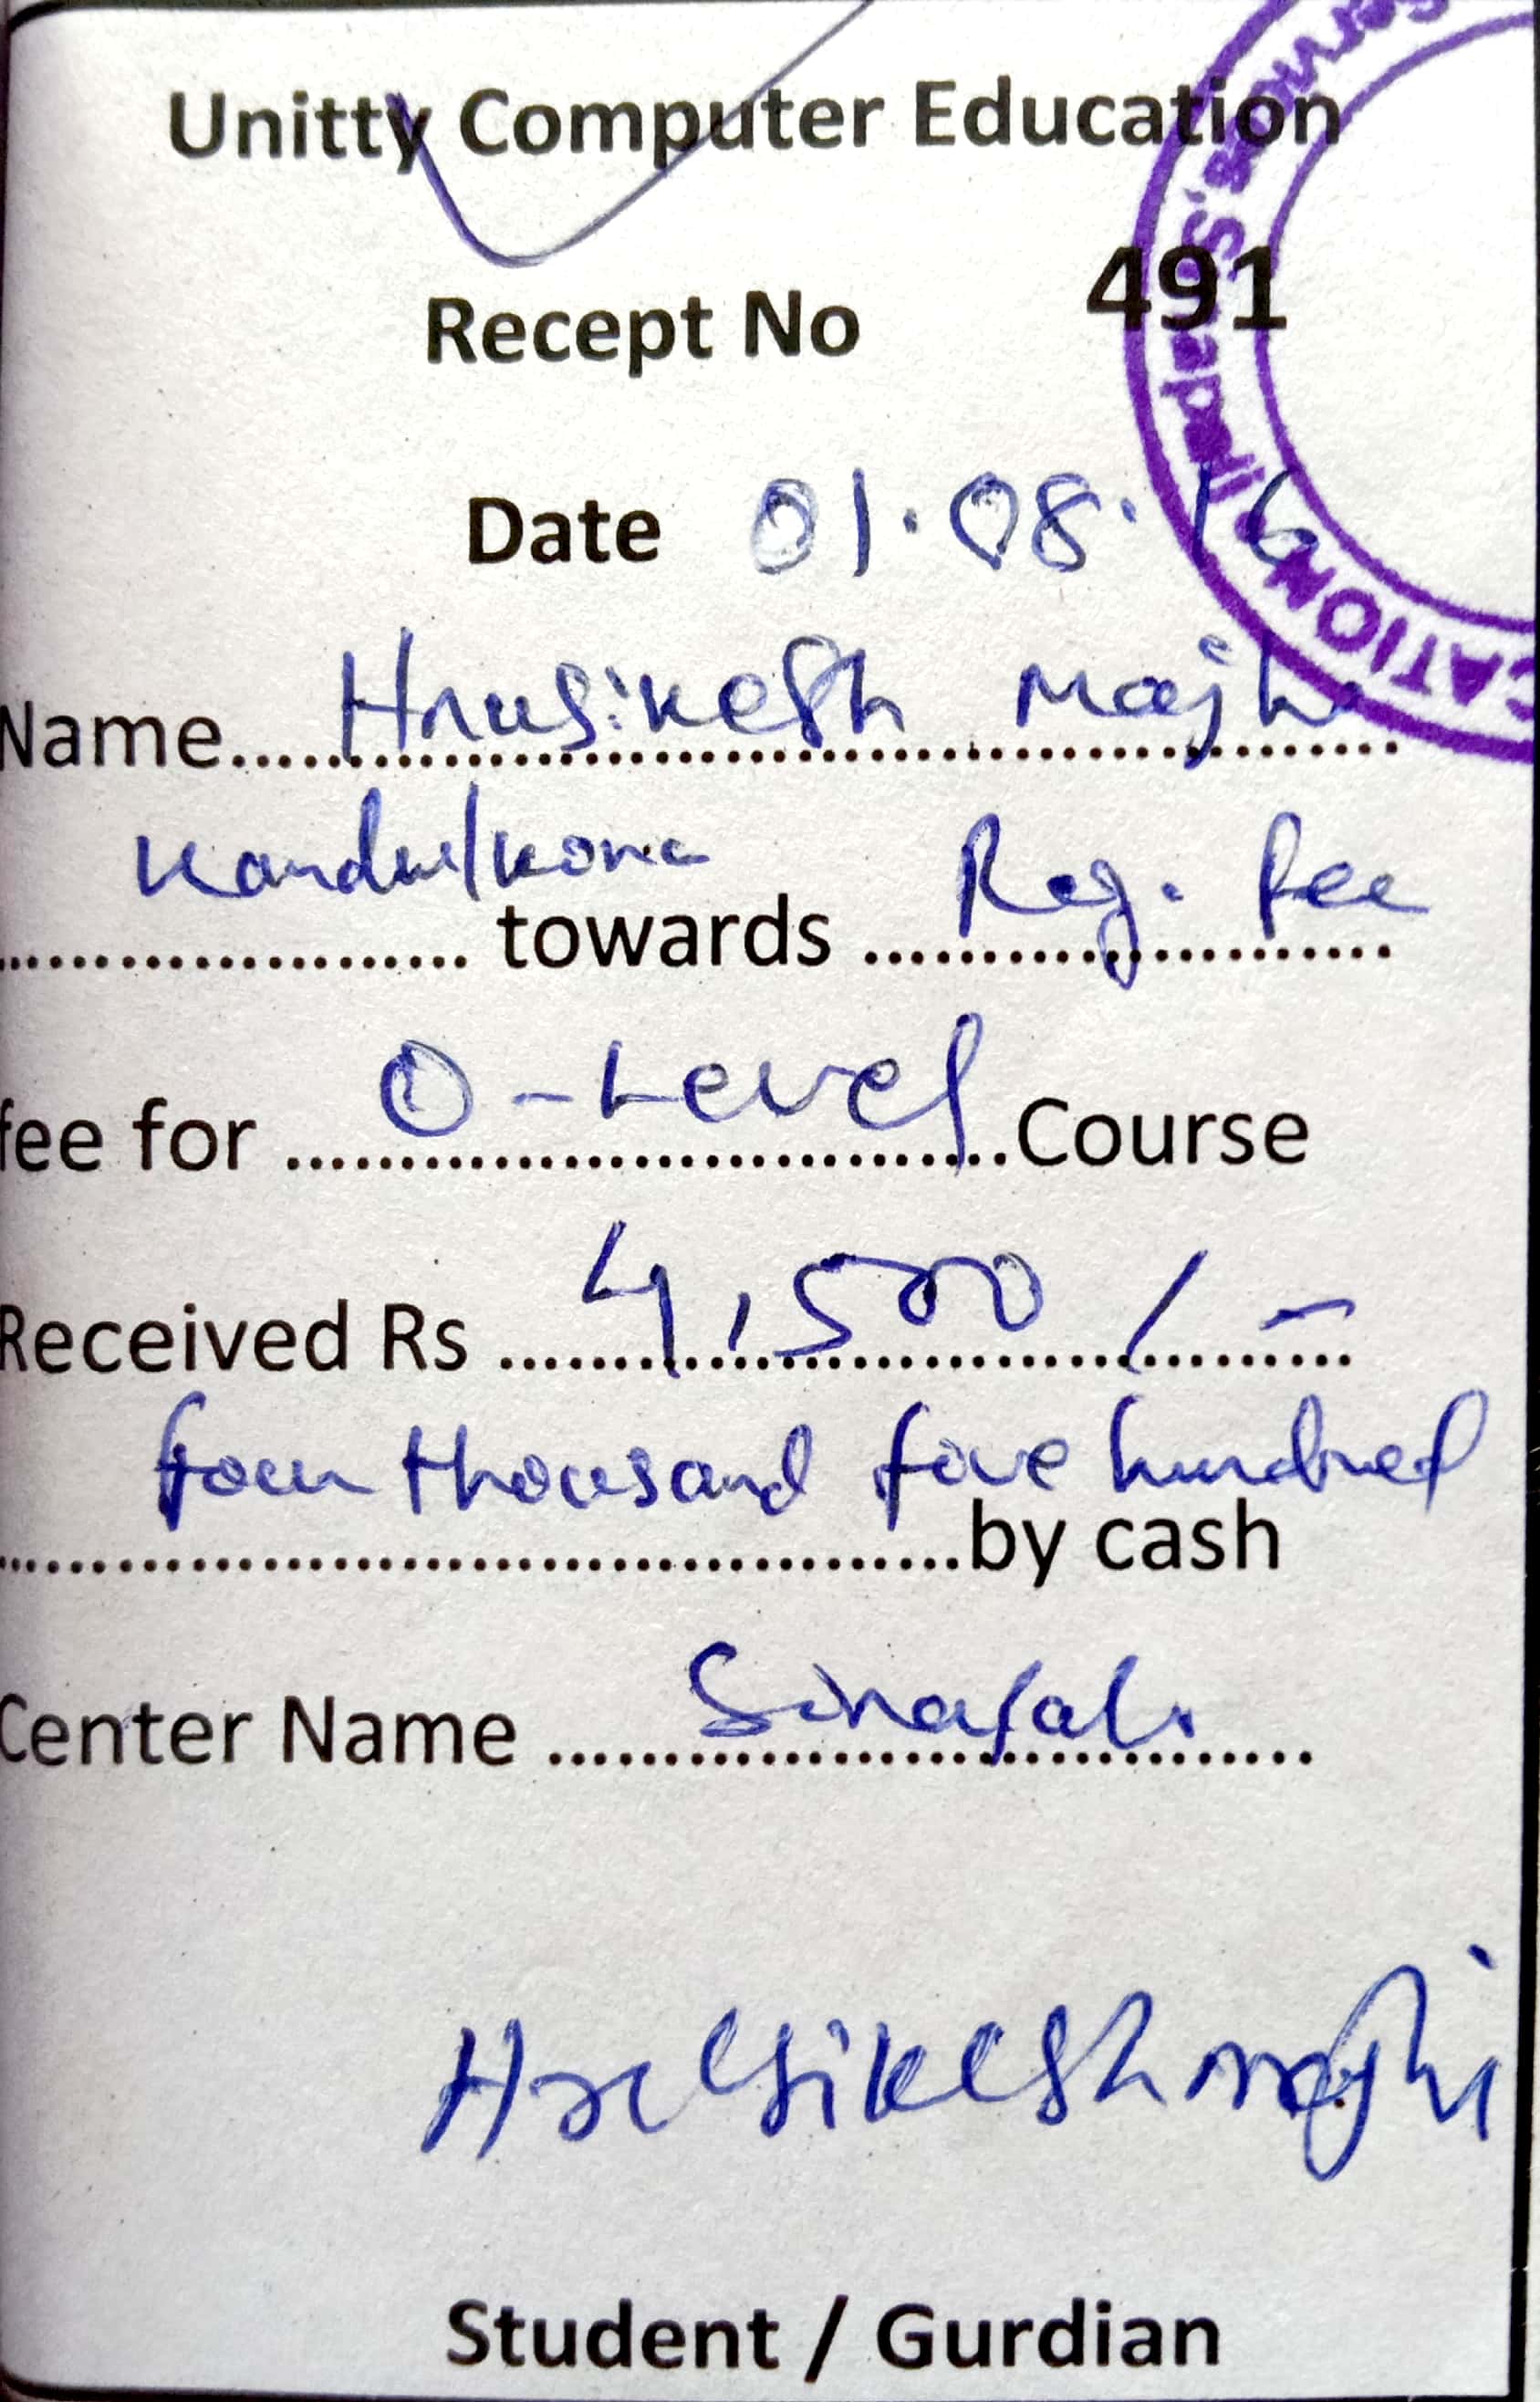 Unitty Computer Education
Recept No 491
Date 01.08.16
Name..... Hrusikesh Majhi
..... towards ..... Reg. fee
fee for ..... O-Level .....Course
Received Rs ..... 4,500/-
four thousand five hundred
.....by cash
Center Name ..... Sinapali
Hrusikesh majhi
Student / Gurdian